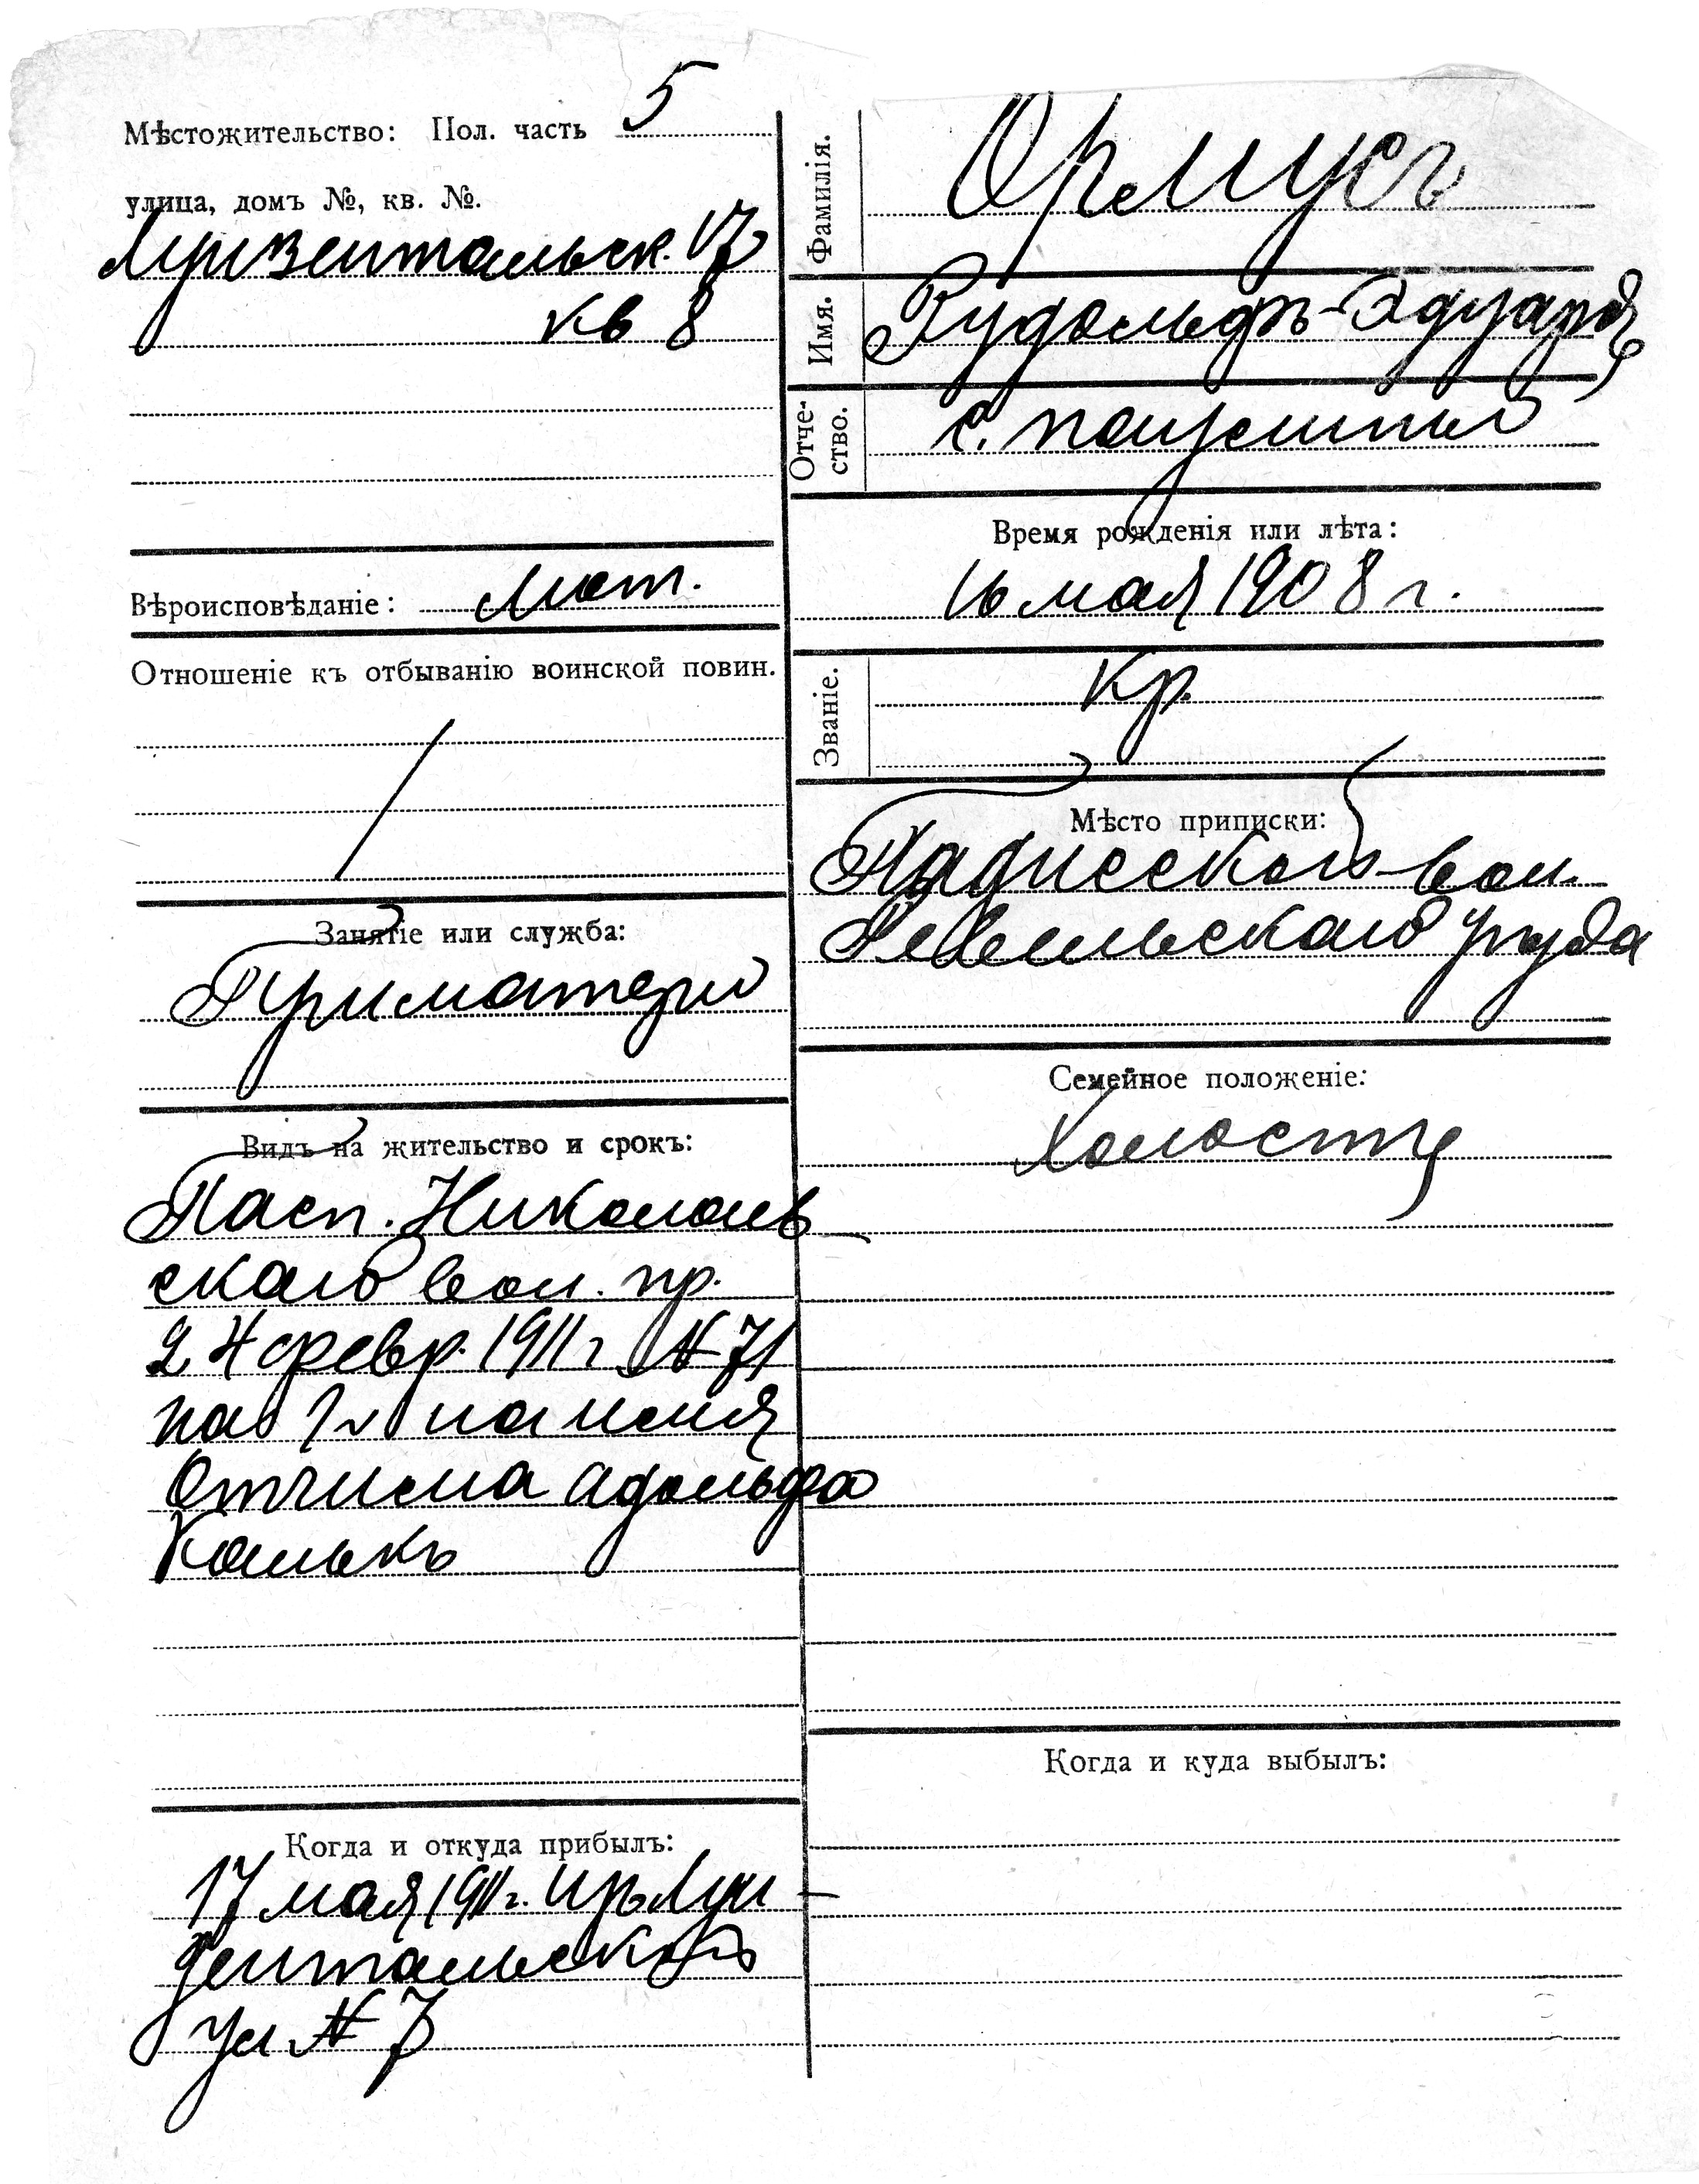 Мѣстожительство: Пол. часть 5
улица, домъ №, кв. №.
кв 8
Вѣроисповѣданіе: Лют.
Отношеніе къ отбыванію воинской повин.
Занятіе или служба:
При матери
Видъ на жительство и срокъ:
Пасп. Николаев
скаго вол. пр.
24 февр. 1911 г № 71
на имя
Отчима Адольфа
Когда и откуда прибылъ:
17 мая 1911 г.
ул № 7
Фамилія.
Имя. Рудольфъ-Эдуардъ
Отче-
ство.
Время рожденія или лѣта:
16 мая 1908 г.
Званіе. Кр.
Мѣсто приписки:
Падисской вол.
Ревельскаго уѣзда
Семейное положеніе:
Холостъ
Когда и куда выбылъ: